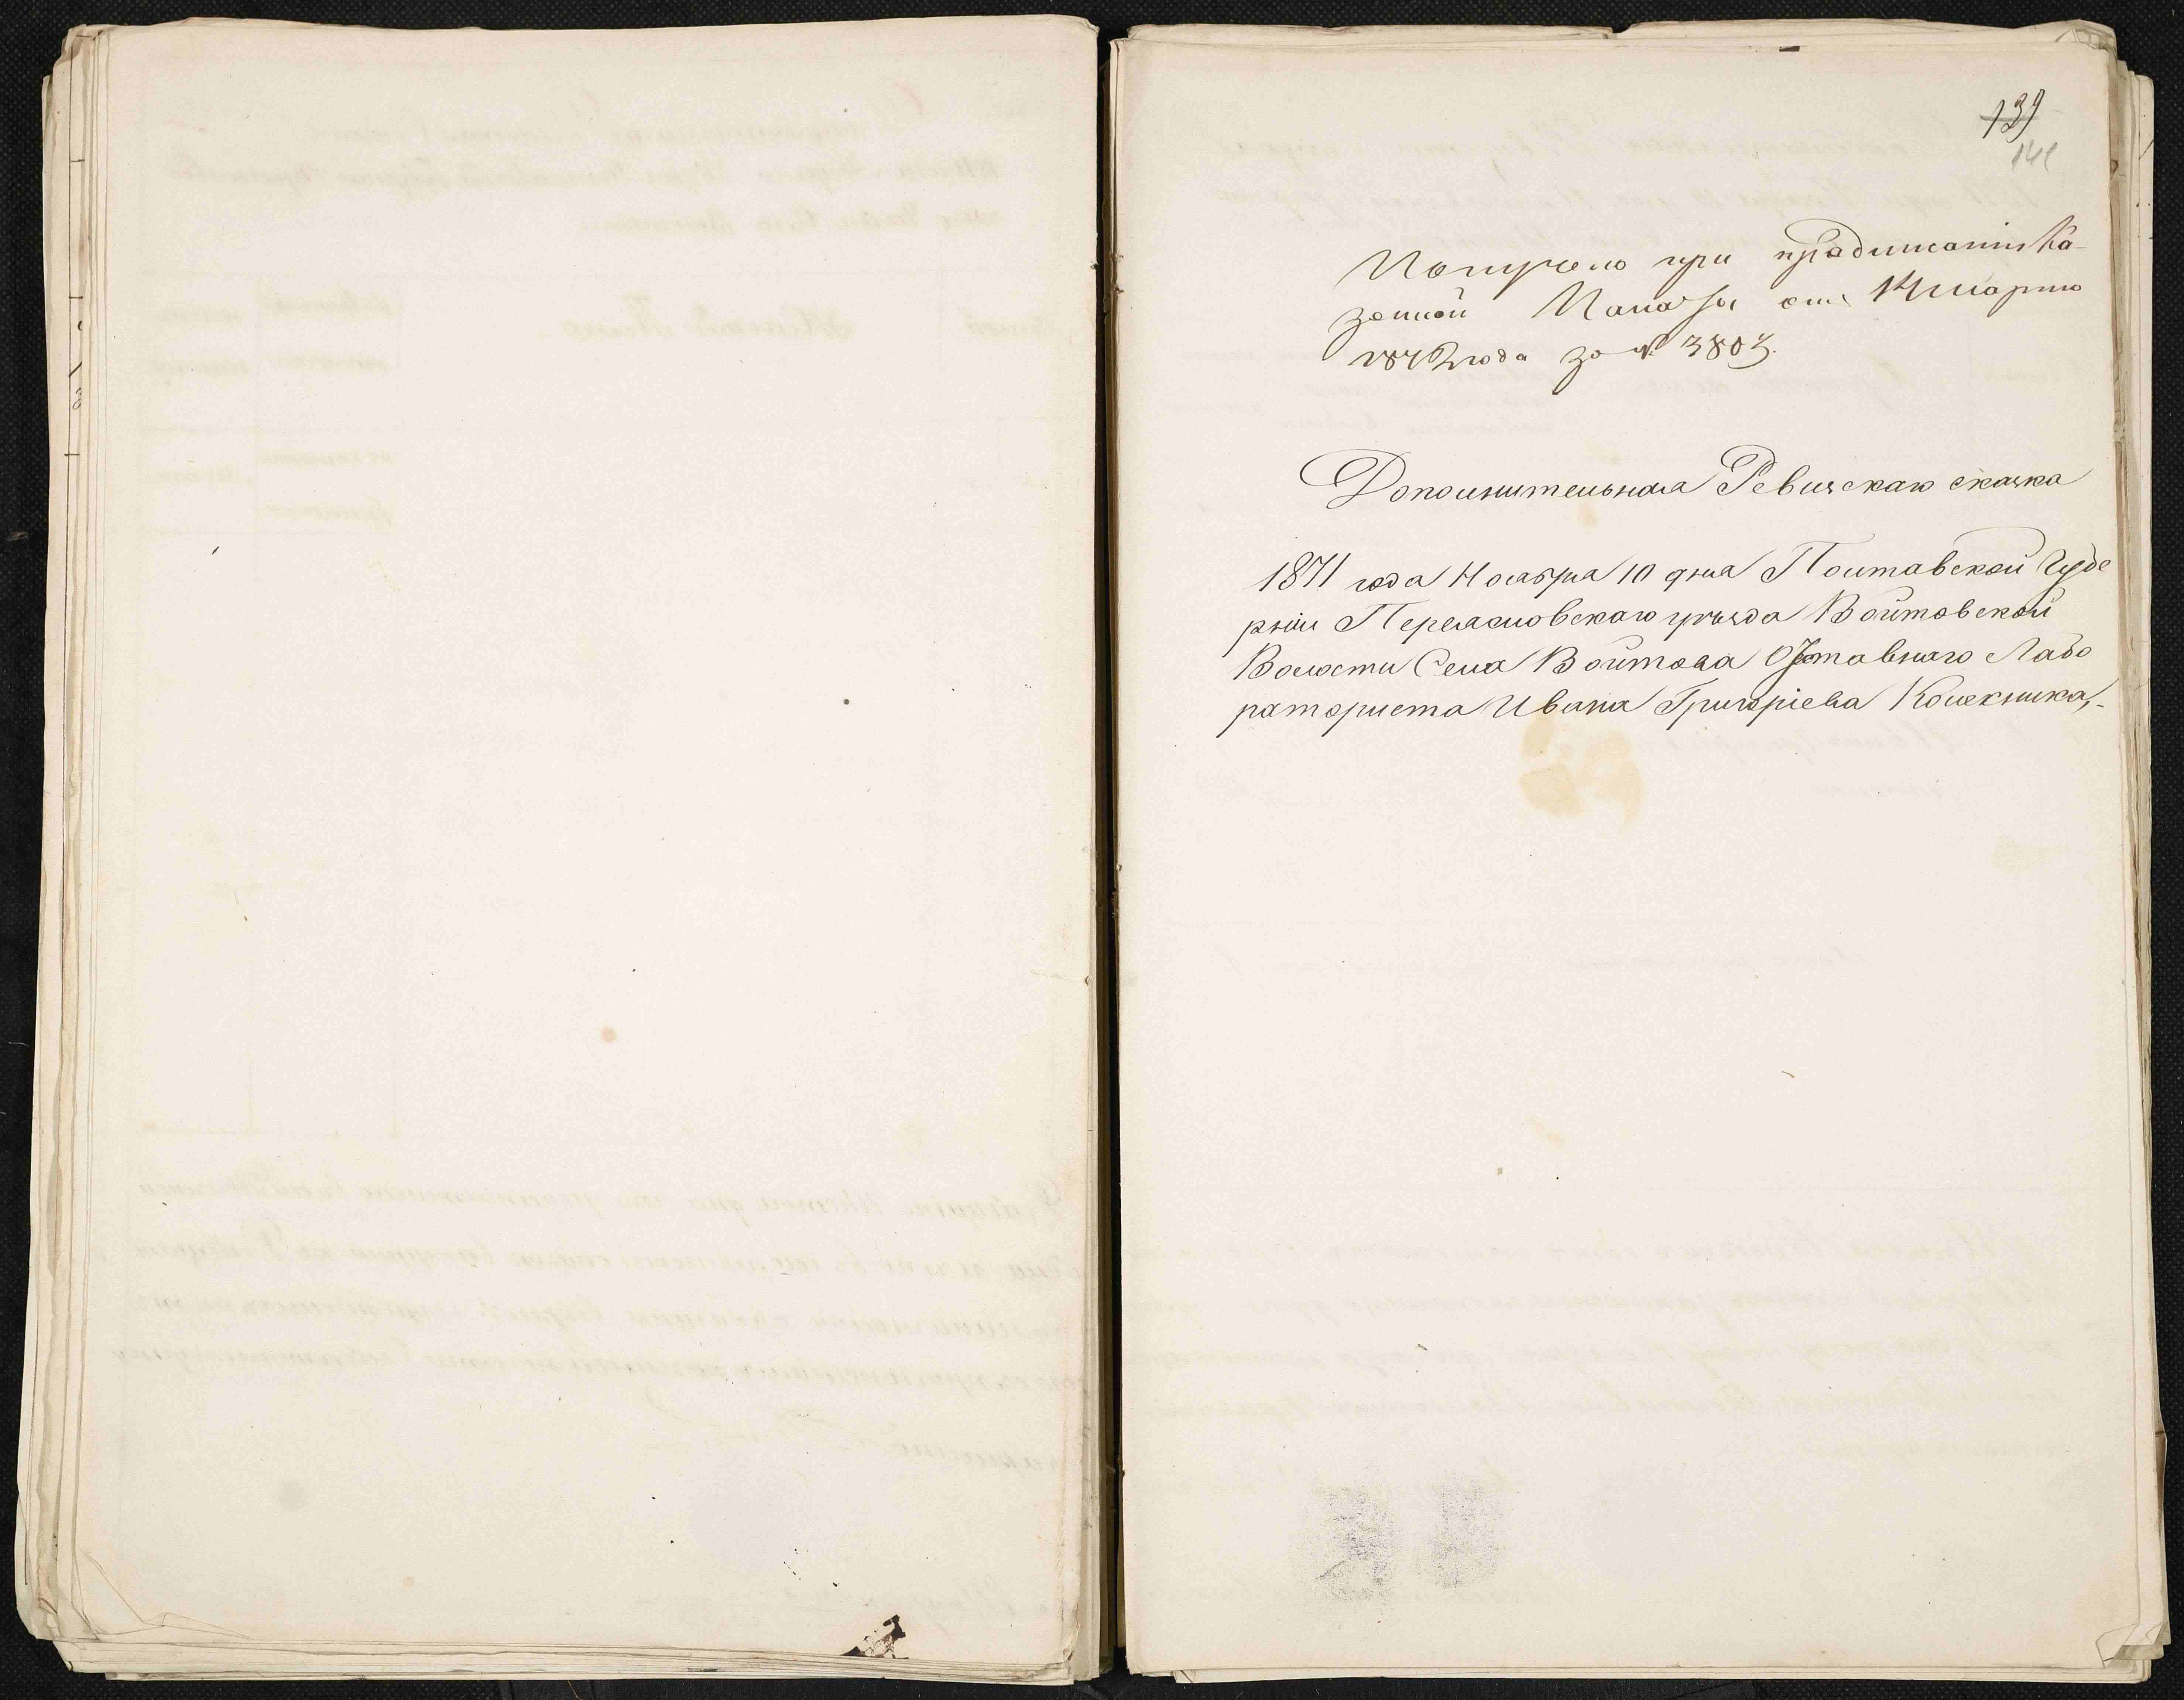 139
141
Получено при предписаніи Ка-
зенной Палаты отъ 14 марта
1872 года за № 3803.
Дополнительная Ревизская сказка
1871 года Ноября 10 дня Полтавской Губе
рніи Переясловскаго уѣзда Войтовской
Волости Села Войтова Отставнаго Лабо
раториста Ивана Григоріева Колекника,-